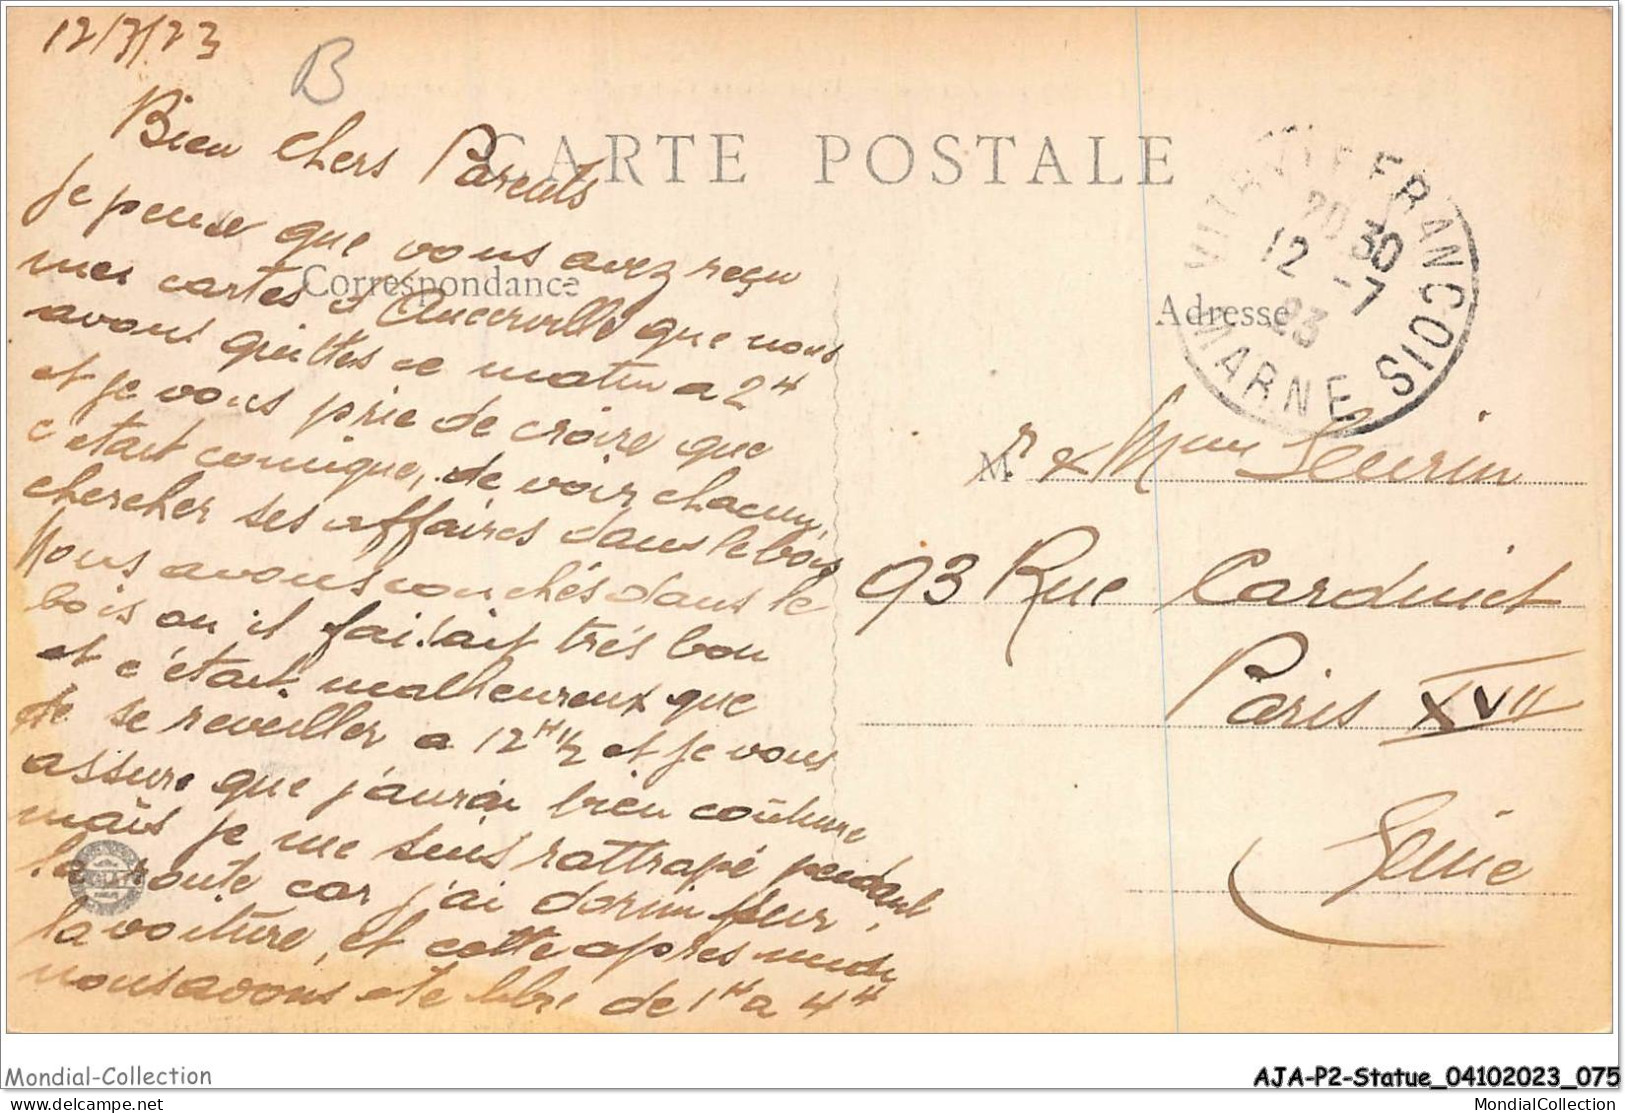 12/7/23
B
CARTE POSTALE
Bien chers Parents
je pense que vous avez reçu
mes cartes d'Ancerville que nous
avons quittes ce matin a 2H
et je vous prie de croire que
c'etait comique, de voir chacun
chercher ses affaires dans le bois
Nous avons couchés dans le
bois ou il faisait trés bon
et c'était malheureux que
de se reveiller a 12H1/2 et je vous
assure que j'aurai bien
mais je me suis rattrapé pendant
la route car j'ai dormi sur
la voiture, et cette apres midi
nous avons ete libre de 1H a 4H
Correspondance
VITRY-LE-FRANCOIS
20 30
12 -7
23
MARNE
Adresse
M.r & Mme Seurin
93 Rue Cardinet
Paris XVII
Seine
Mondial-Collection
AJA-P2-Statue_04102023_075
delcampe.net
MondialCollection